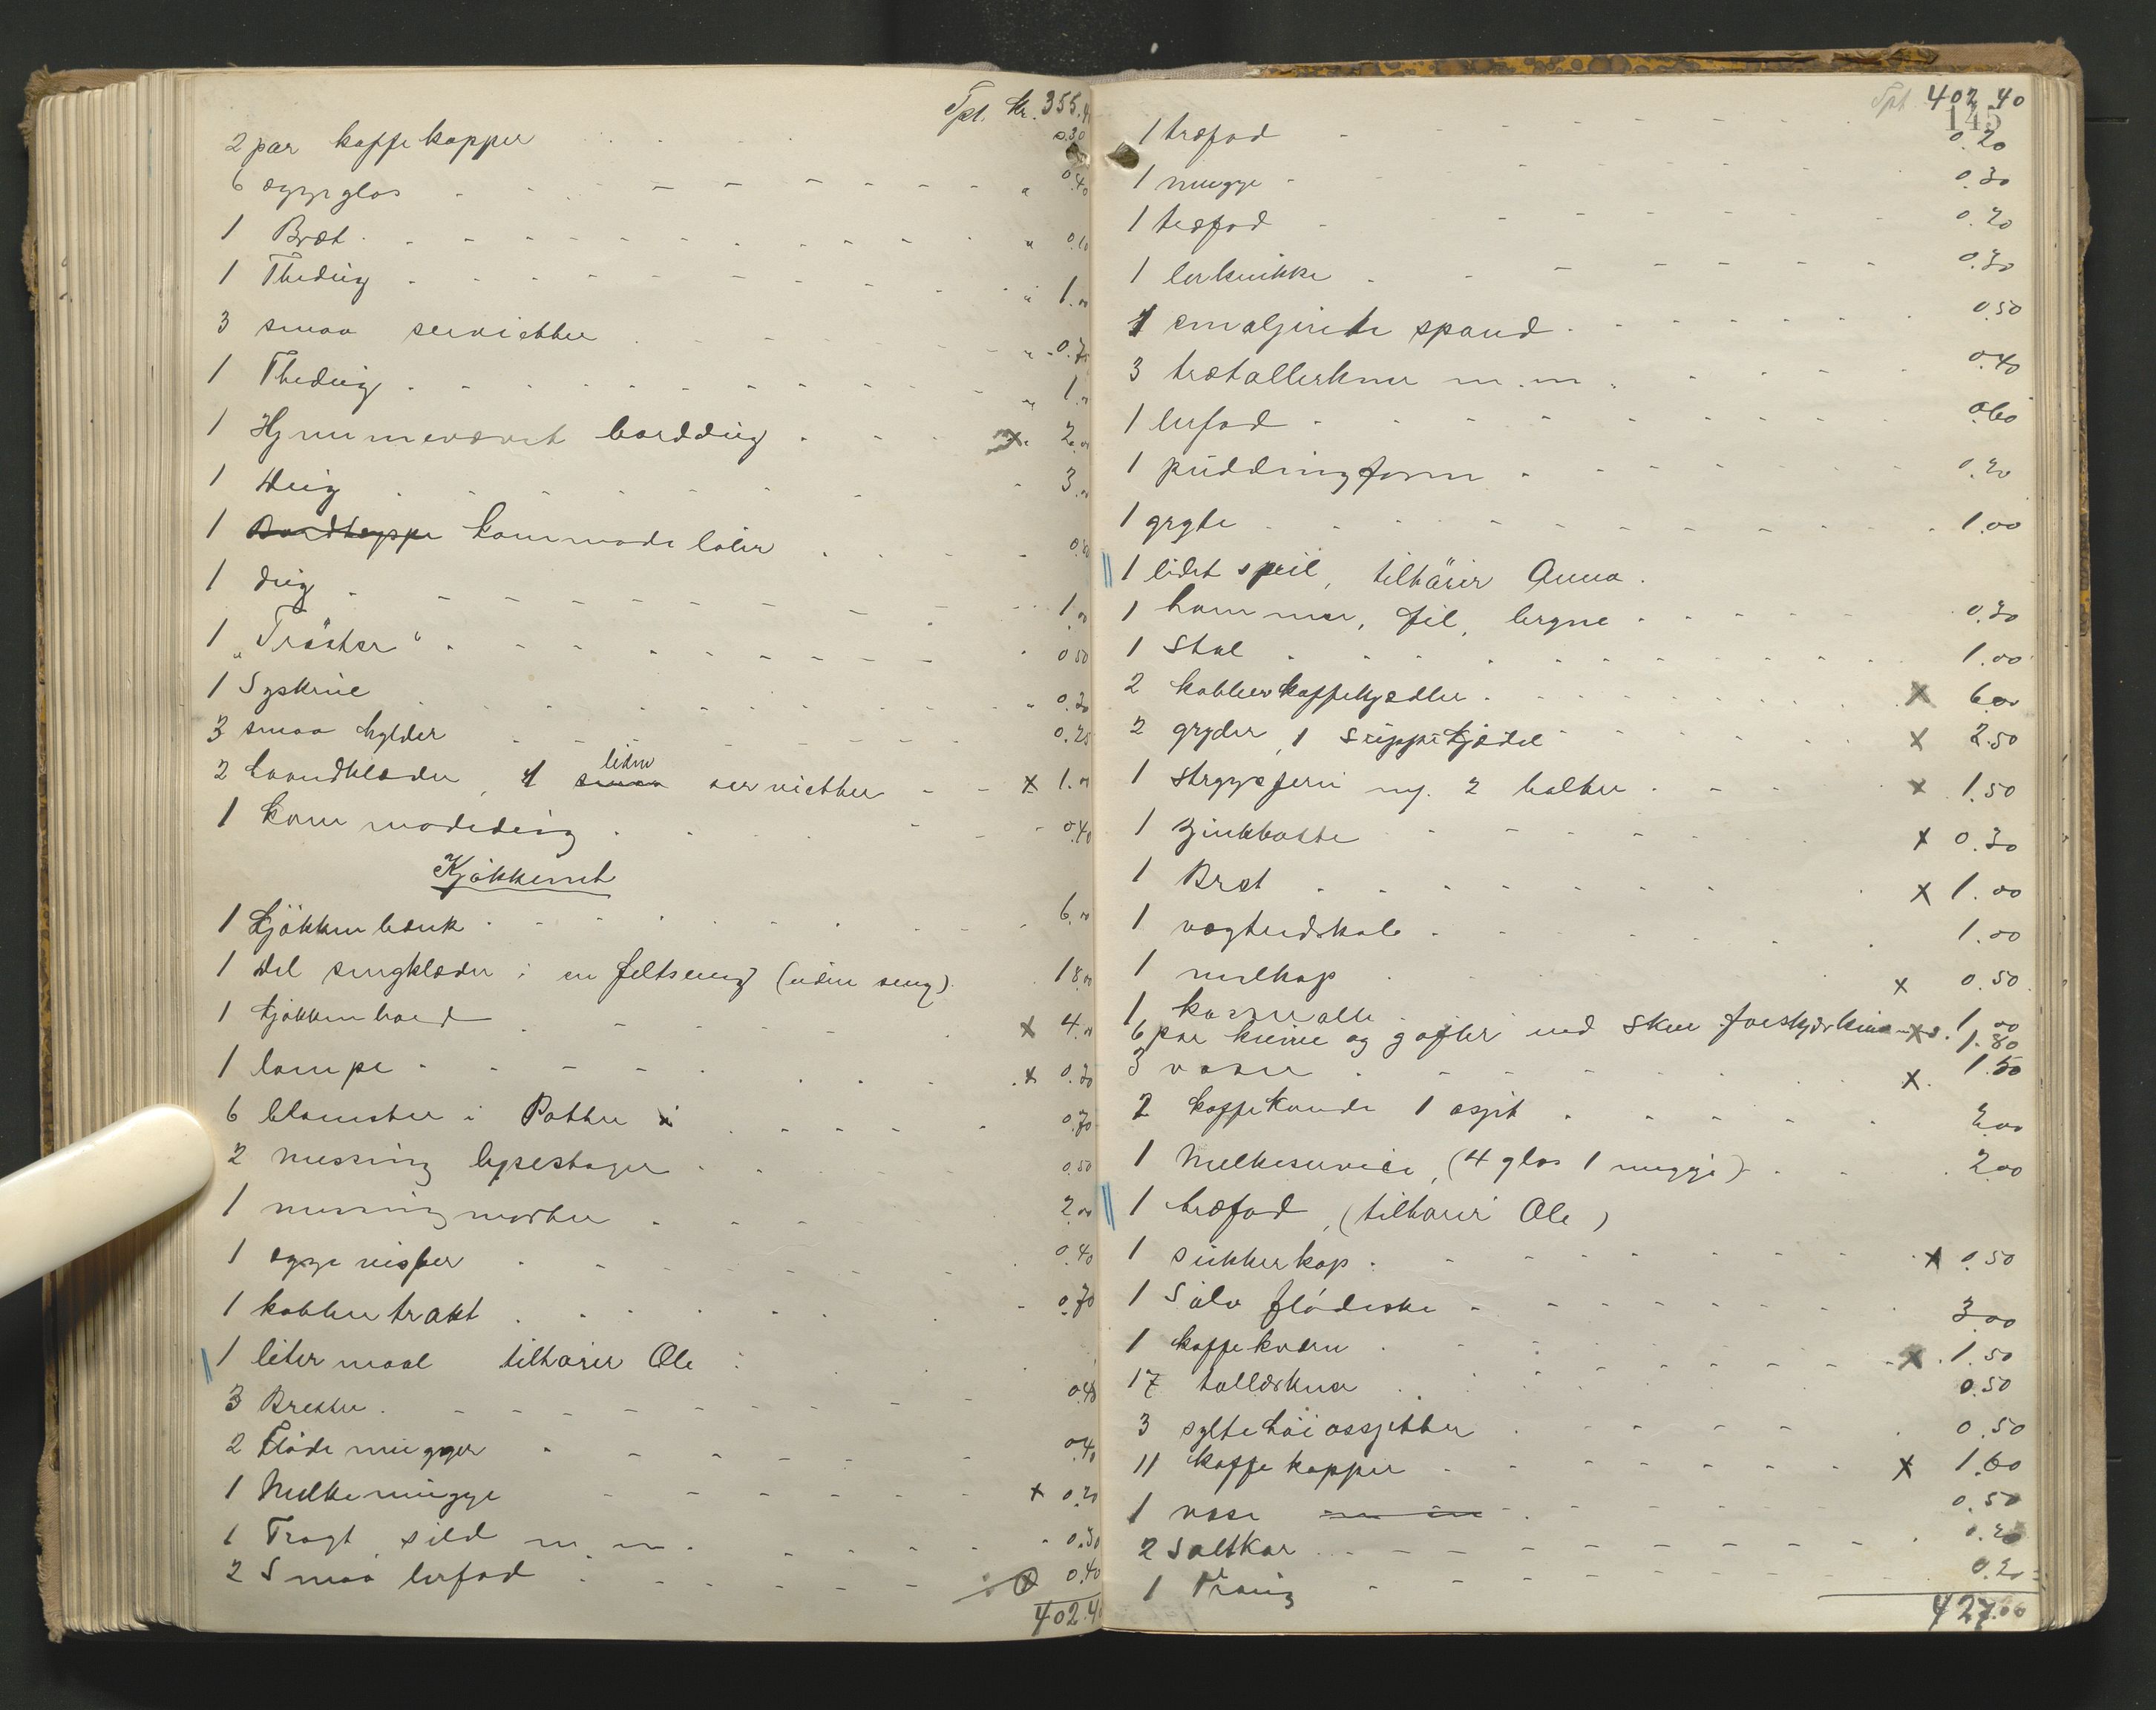 Tpt. Kr. 355.4
2 par kaffekopper 0.30
6 æggeglas " 0.40
1 Bræt " 0.10
1 Thedug " 1.00
3 smaa servietter " 0.75
1 Thedug " 1.00
1 Hjemmevævet borddug x 2.00
1 dug 3.00
1 Bordteppe kommodelöber 0.50
1 dug 1.00
1 „Tröster“ 0 50
1 Syskrin " 0.20
3 smaa hylder 0.25
2 haandklæder, 1 smaa liden servietter x 1.00
1 kommodedug 0.40
Kjökkenet
1 kjökkenbænk 6.00
1 del sengklæder i en feltseng (uden seng) 18.00
1 kjökkenbord x 4.00
1 lampe x 0.20
6 blomster i Potter 0.70
2 messing lysestager 0.50
1 messingmorter 2.00
1 eggevisper 0.40
1 kobbertrakt 0.70
1 litermaal tilhører Ole
3 Bretter 0.40
2 Flödemugger 0.40
1 Melkemugge x 0.20
1 Tragt, sild m. m. 0.30
2 Smaa lerfad x 0.40
402.40
Tpt. 402.40
145
1 træfad 0.20
1 mugge 0.30
1 træfad 0.20
1 lerkrukke 0.30
1 emaljerete spand 0.50
3 trætallerkner m.m. 0.40
1 lerfad 0.60
1 puddingform 0.20
1 gryte 1.00
1 lidet speil, tilhörer Anna.
1 hammer, fil, 0.30
1 Stol 1.00
2 kobberkaffekjedler x 6.00
2 gryder, 1 suppekjedel x 2.50
1 strygejern m/ 2 bolter x 1.50
1 zinkbøtte x 0.30
1 Bræt x 1.00
1 vægtudskale 1.00
1 melkop x 0.50
1 kasserolle 1.00
6 par knive og gafler med skeer forskjærkniv x 1.80
3 vaser x 1.50
2 kaffekande 1 asjet 2.00
1 Melkeservice, (4 glas 1 mugge) 2.00
1 træfad, (tilhører Ole)
1 sukkerkop x 0.50
1 Sølv flödeske 3.00
1 kaffekværn x 1.50
17 tallærkner 0.50
3 syltetöiassjetter 0.50
11 kaffekopper x 1.60
1 vase 0.50
2 Saltkar 0.20
1 0.20
427.60